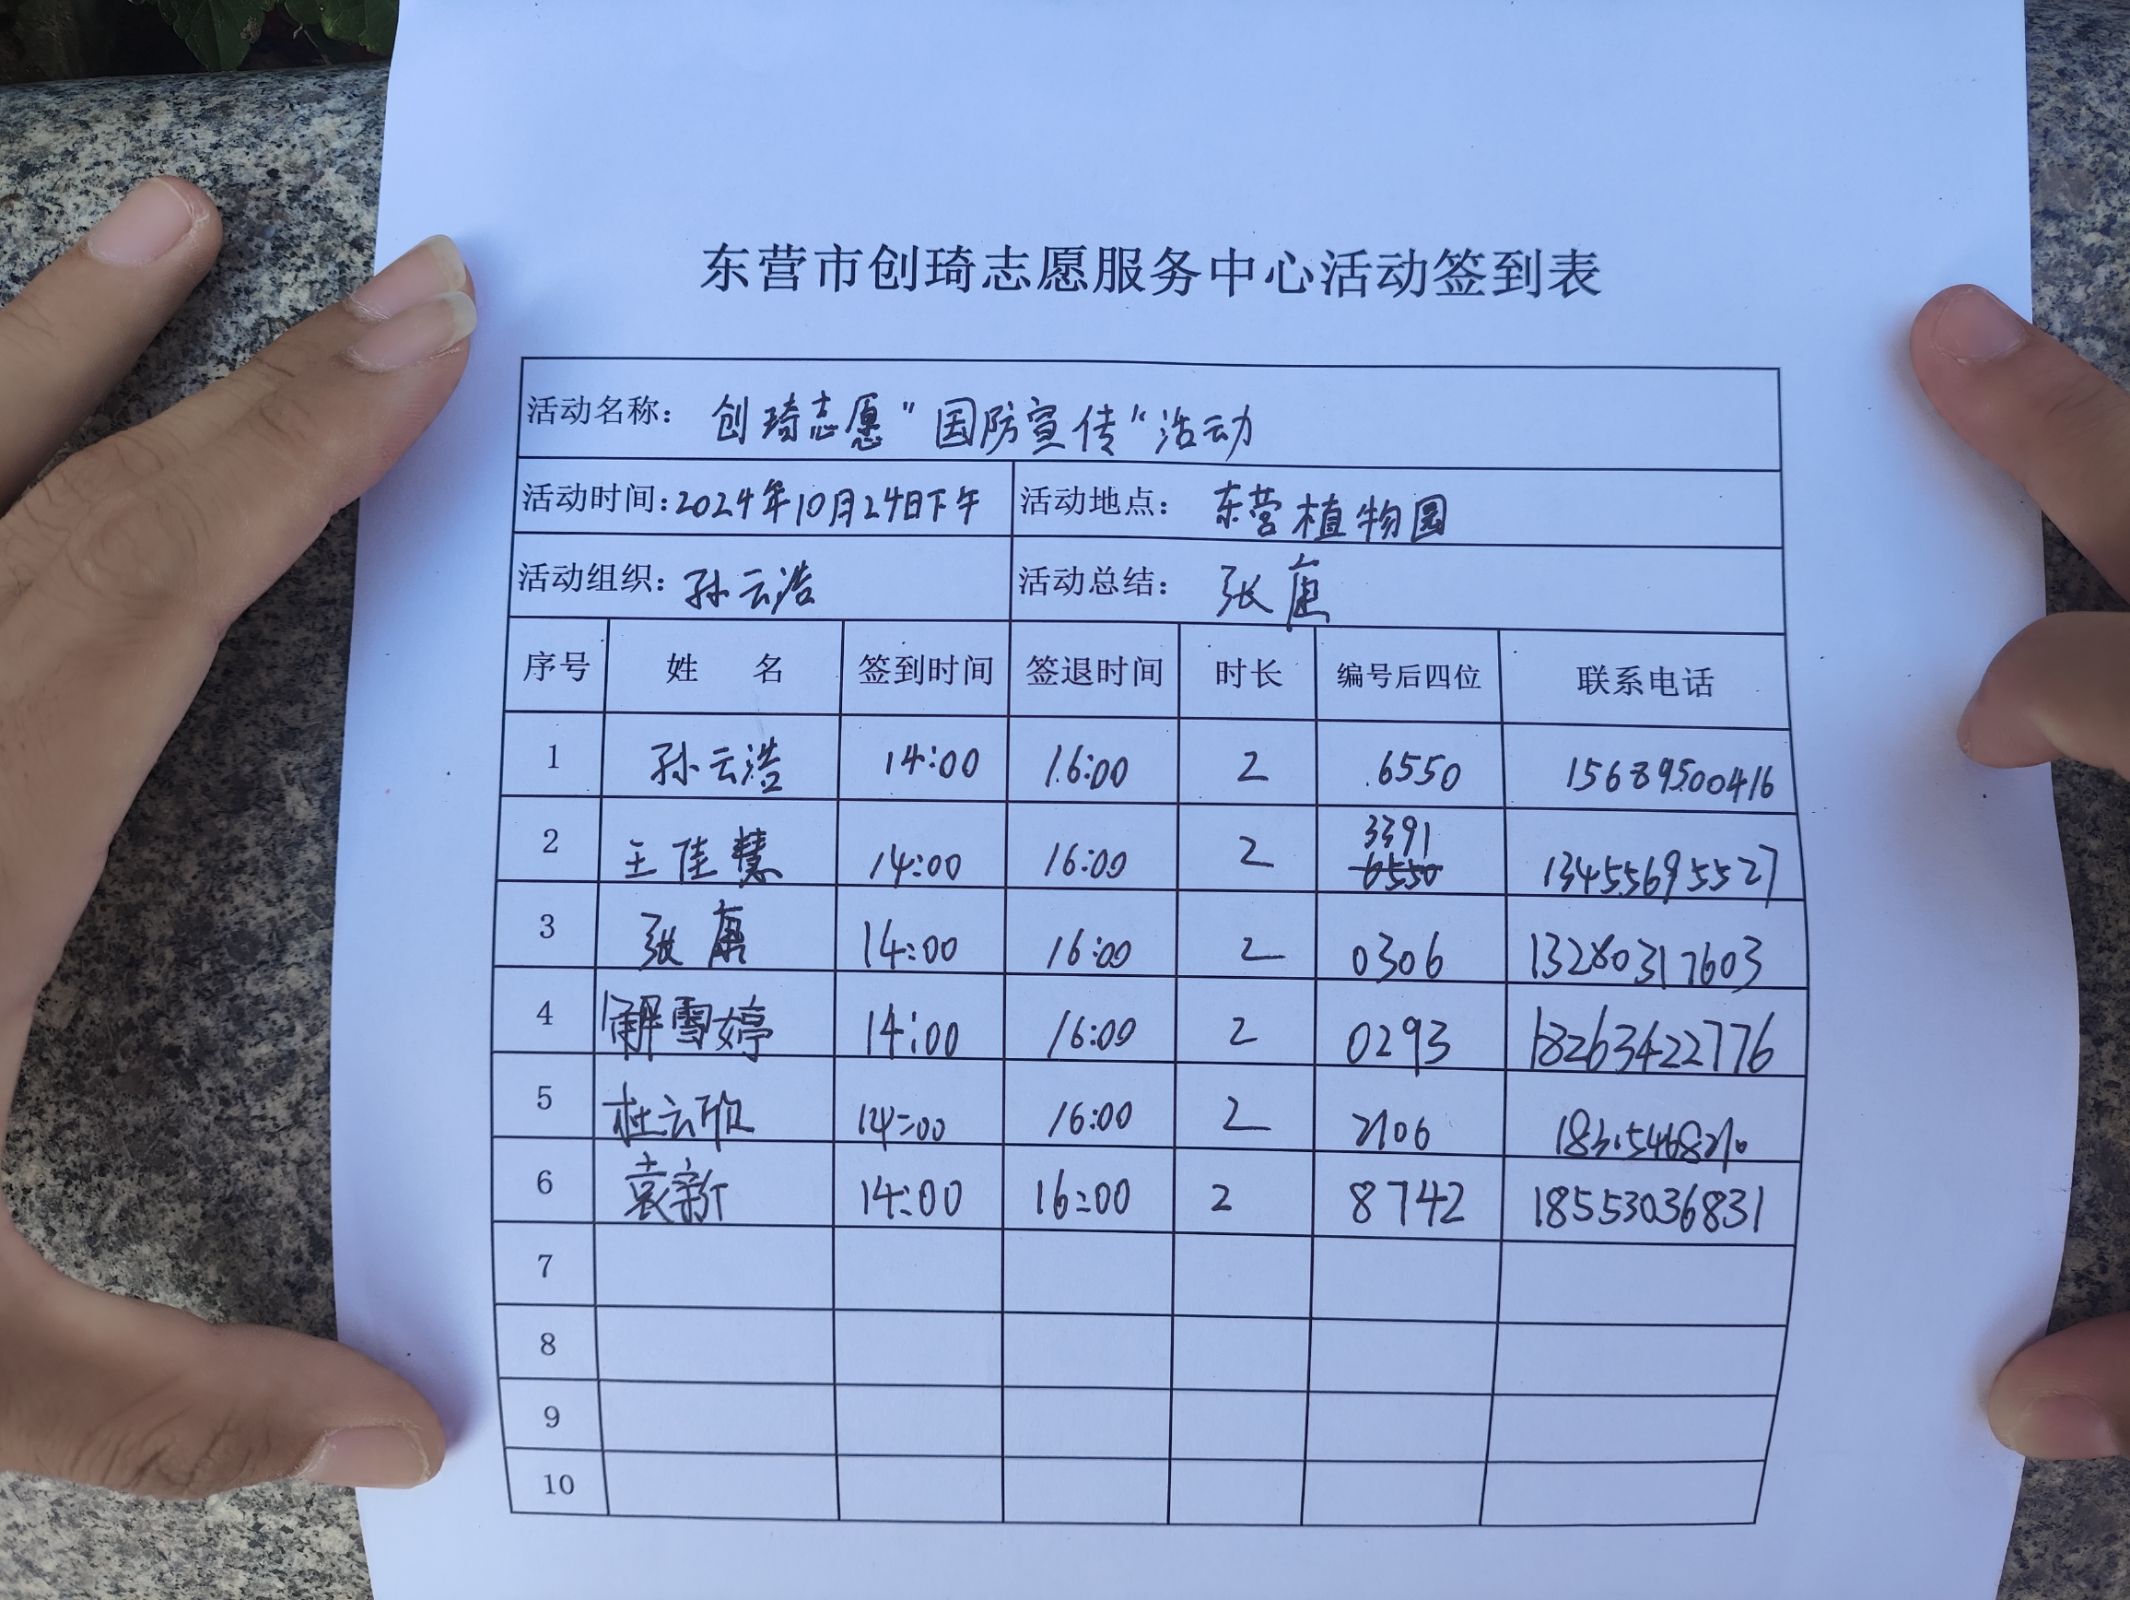 东营市创琦志愿服务中心活动签到表
活动名称：创琦志愿"国防宣传"活动
活动时间：2024年10月24日下午 活动地点：东营植物园
活动组织：孙云浩 活动总结：张康
序号 姓 名 签到时间 签退时间 时长 编号后四位 联系电话
1 孙云浩 14:00 16:00 2 6550 15689500416
2 王佳慧 14:00 16:00 2 3391 13455695527
3 张康 14:00 16:00 2 0306 13280317603
4 解雪婷 14:00 16:00 2 0293 18263422776
5 杜云欣 14:00 16:00 2 2106
6 袁新 14:00 16:00 2 8742 18553036831
7
8
9
10